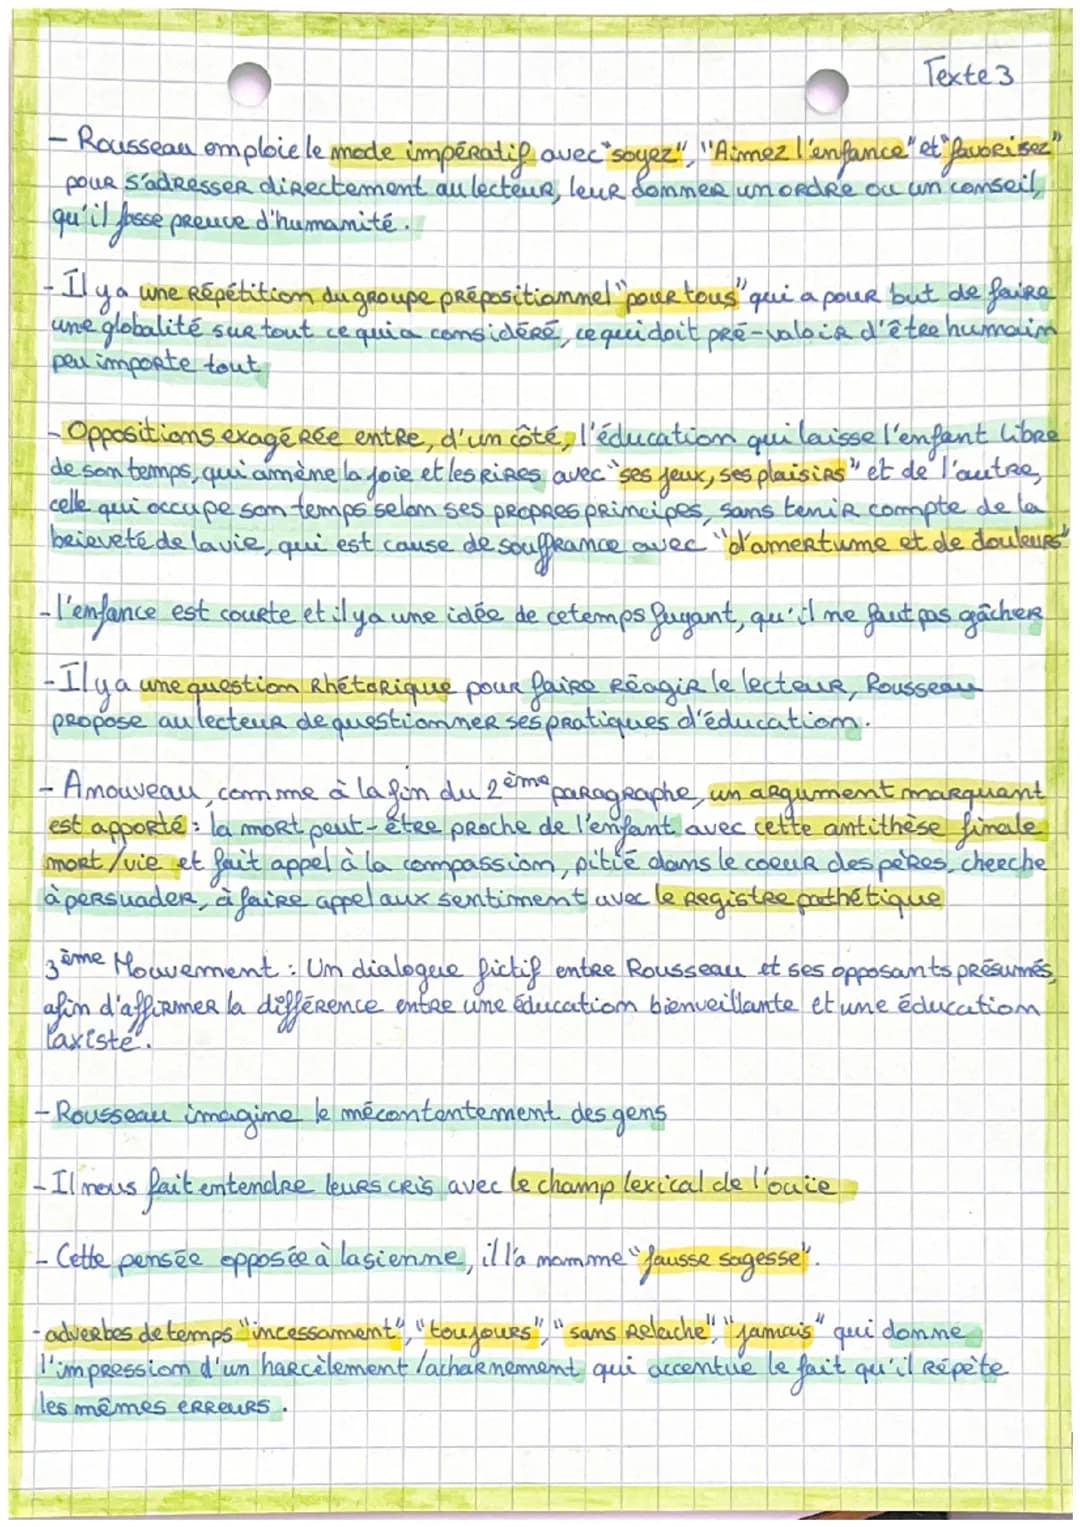 Texte 3
- Rousseau emploie le mode impératif avec "soyez", "Aimez l'enfance" et "favorisez"
pour s'adresser directement au lecteur, leur donner un ordre ou un conseil,
qu'il fasse preuve d'humanité.
- Il y a une répétition du groupe prépositionnel "pour tous" qui a pour but de faire
une globalité sur tout ce qui a considéré, ce qui doit pré-valoir d'être humain
peu importe tout
- Oppositions exagérée entre, d'un côté, l'éducation qui laisse l'enfant libre
de son temps, qui amène la joie et les rires avec "ses jeux, ses plaisirs" et de l'autre,
celle qui occupe son temps selon ses propres principes, sans tenir compte de la
brieveté de la vie, qui est cause de souffrance avec "d'amertume et de douleurs"
- l'enfance est courte et il y a une idée de ce temps fuyant, qu'il ne faut pas gâcher
- Il y a une question rhétorique pour faire réagir le lecteur, Rousseau
propose au lecteur de questionner ses pratiques d'éducation.
- A nouveau, comme à la fin du 2ème paragraphe, un argument marquant
est apporté : la mort peut-être proche de l'enfant avec cette antithèse finale
mort/vie et fait appel à la compassion, pitié dans le coeur des pères, cherche
à persuader, à faire appel aux sentiment avec le registre pathétique
3ème Mouvement : Un dialogue fictif entre Rousseau et ses opposants présumés,
afin d'affirmer la différence entre une éducation bienveillante et une éducation
laxiste.
- Rousseau imagine le mécontentement des gens
- Il nous fait entendre leurs cris avec le champ lexical de l'ouïe
- Cette pensée opposée à la sienne, il l'a nomme "fausse sagesse".
- adverbes de temps "incessament", "toujours", "sans relache", "jamais" qui donne
l'impression d'un harcèlement/acharnement qui accentue le fait qu'il répète
les mêmes erreurs.